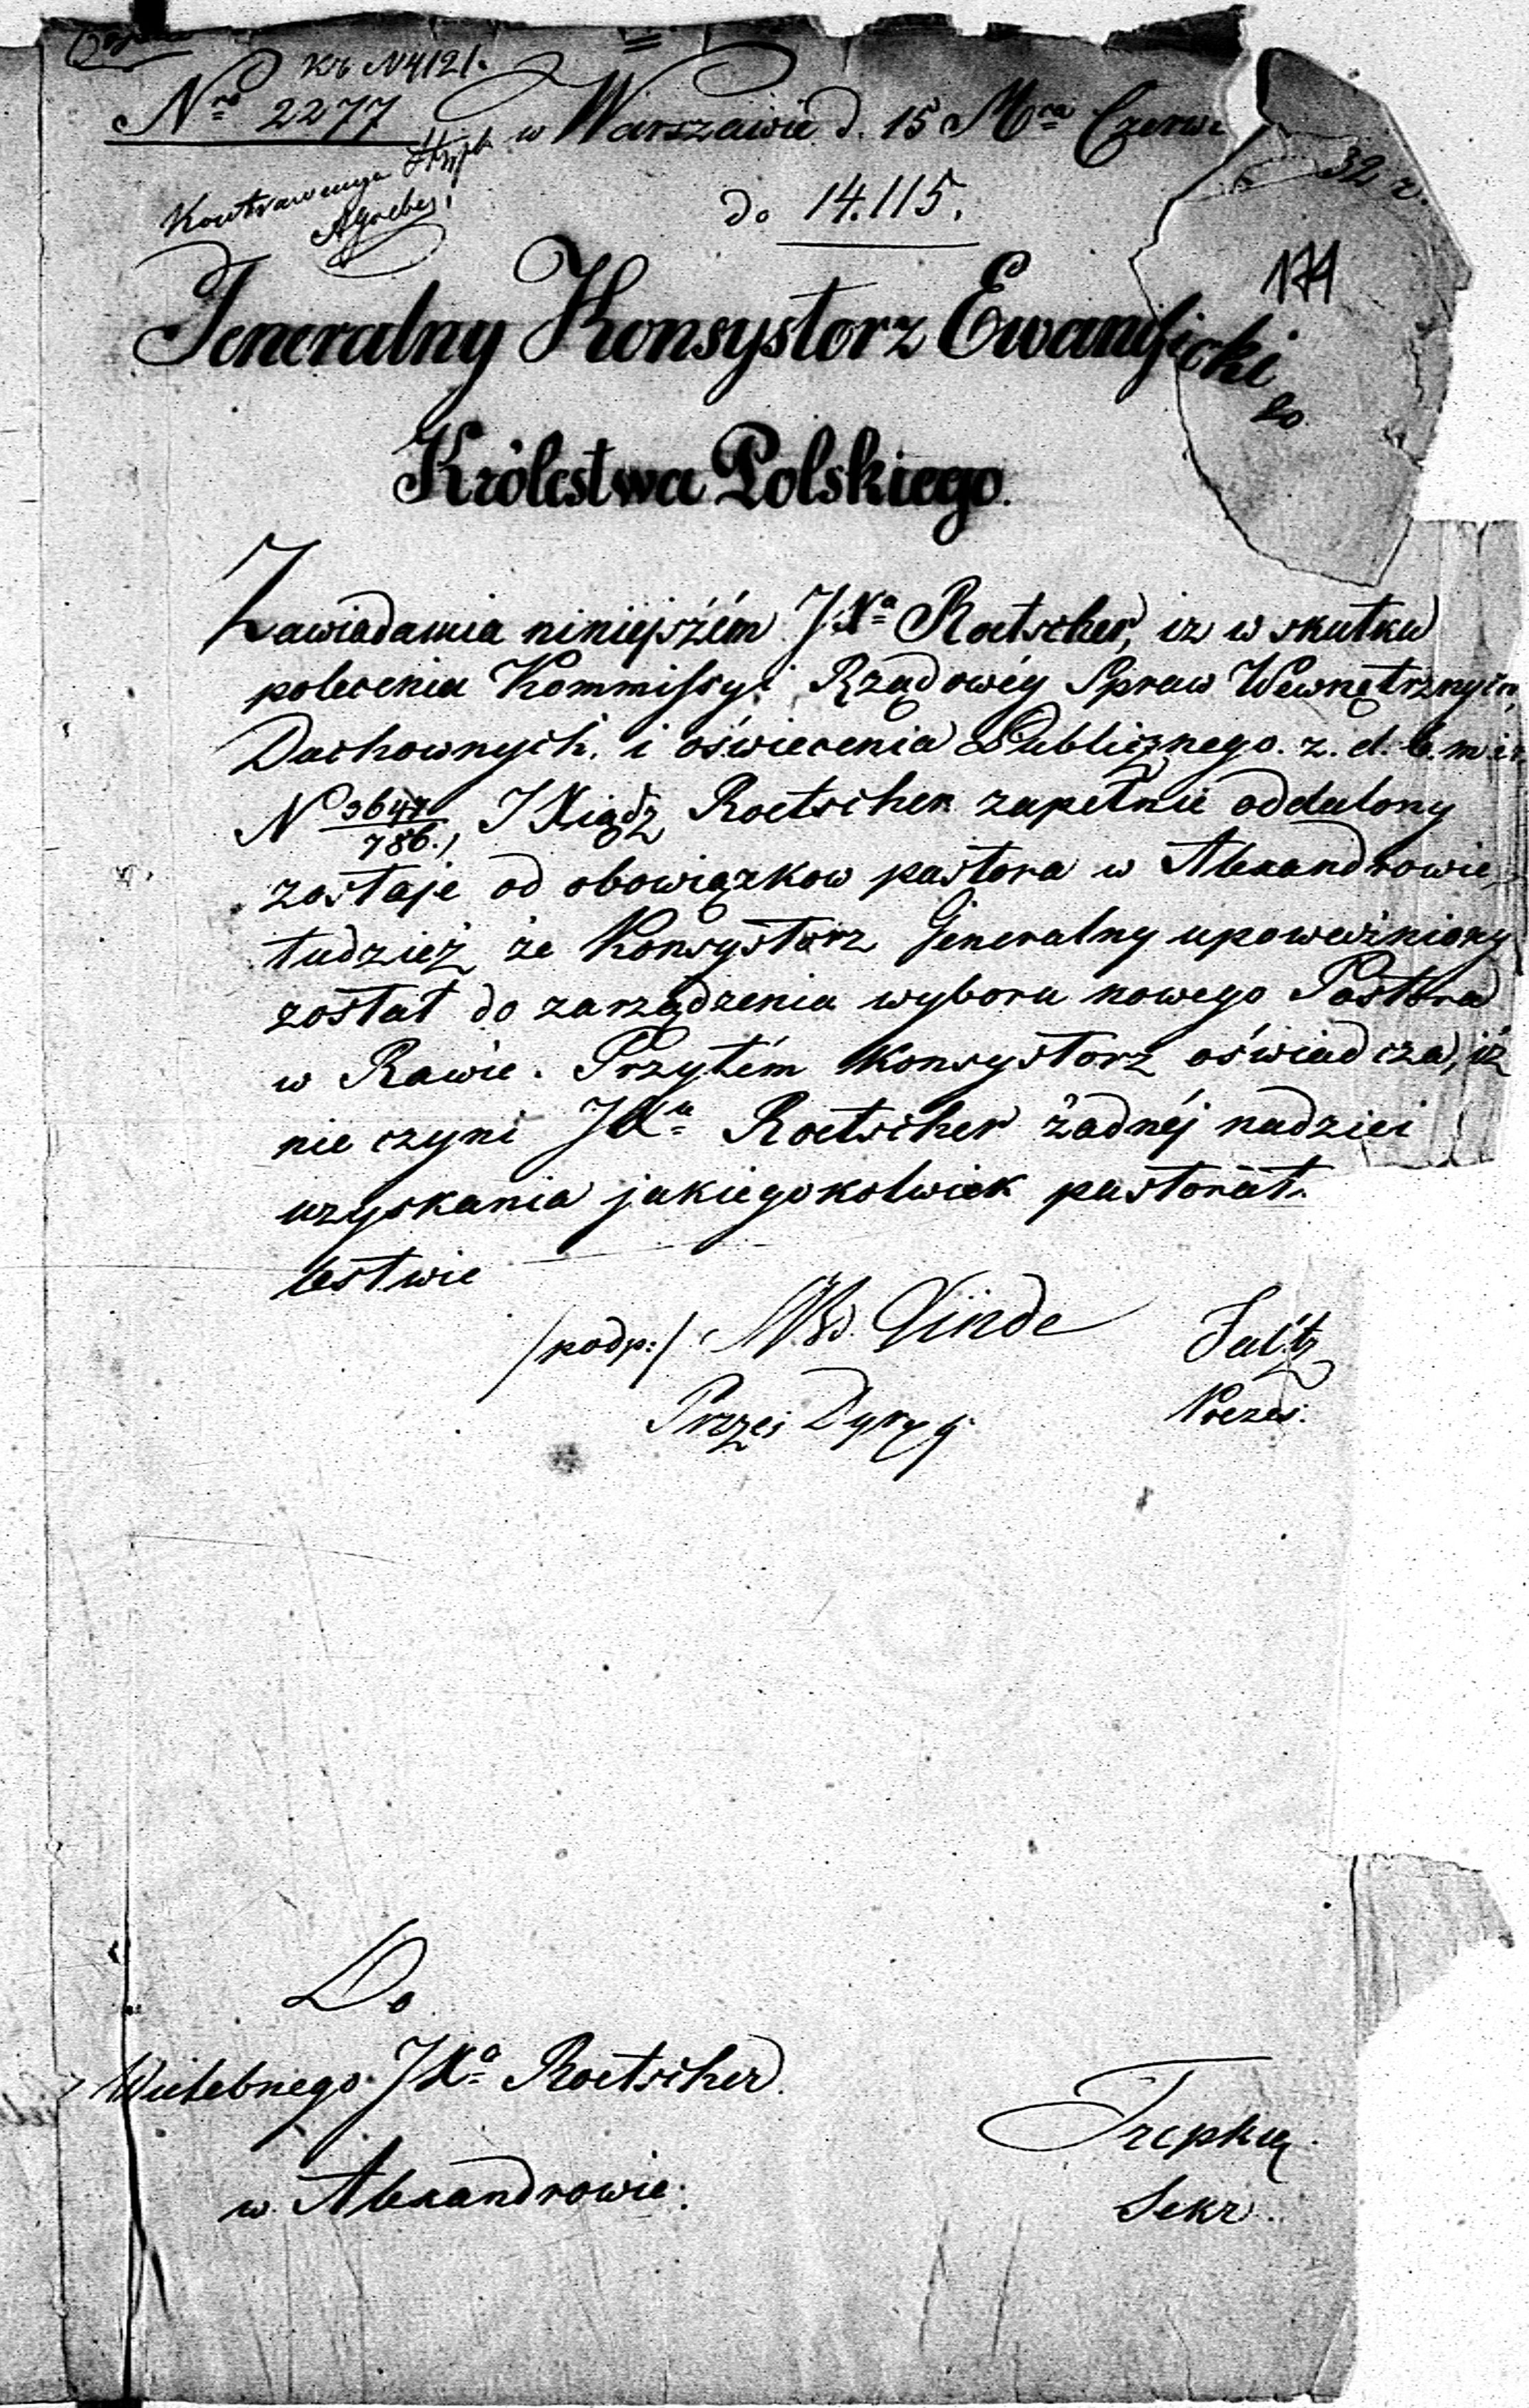 Kr N 4121.
Nro 2277
w Warszawie d. 15 Mca Czerwc
32 r.
do 14.115.
171
Jeneralny Konsystorz Ewangelicki
Królestwa Polskiego.
Zawiadamia niniejszém JXa Roetscher, iż w skutku
polecenia Kommissyi Rządowéy Spraw Wewnętrznych,
Duchownych, i oświecenia Publicznego z. d. 6. m. i r.
N 3647/786., JXiądz Roetscher zupełnie oddalony
zostaje od obowiązkow pastora w Alexandrowie,
tudzież że Konsystorz Jeneralny upoważniony
został do zarządzenia wyboru nowego Pastora
w Rawie. Przytém Konsystorz oświadcza, iż
nie czyni JXu Roetscher żadnéj nadziei
uzyskania jakiegokolwiek pastorat
lestwie
/podp:/ Linde
Prezes.
Do
Wielebnego JXa Roetscher.
w Alexandrowie.
Sekr.